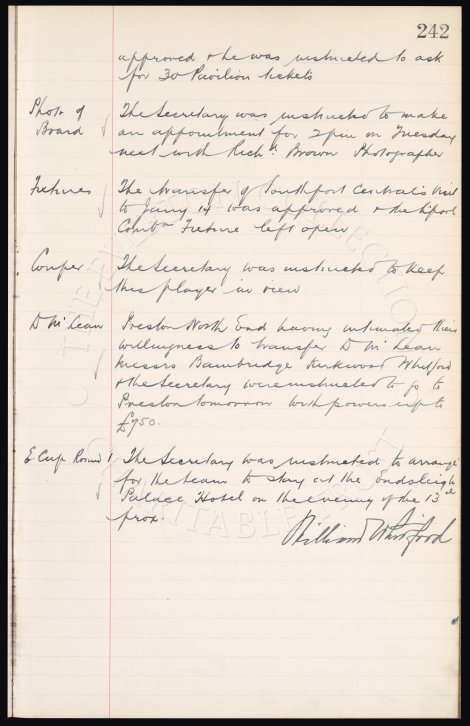 242
approved & he was instructed to ask
for 30 Pavilion tickets
Photo of Board
The Secretary was instructed to make
an appointment for 2pm on Tuesday
next with Richd Brown Photographer
Fixtures
The transfer of Southport Central's visit
to Jany 14 was approved & the L'pool
Combn Fixture left open
Couper
The Secretary was instructed to keep
this player in view
D McLean
Preston North End having intimated their
willingness to transfer D McLean
Messrs Bainbridge Kirkwood Whitford
& the Secretary were instructed to go to
Preston tomorrow with powers up to
£750.
E Cup Round 1
The Secretary was instructed to arrange
for the team to stay at the Endsleigh
Palace Hotel on the evening of the 13th
prox.
William Whitford
THE EVERTON COLLECTION
CHARITABLE TRUST